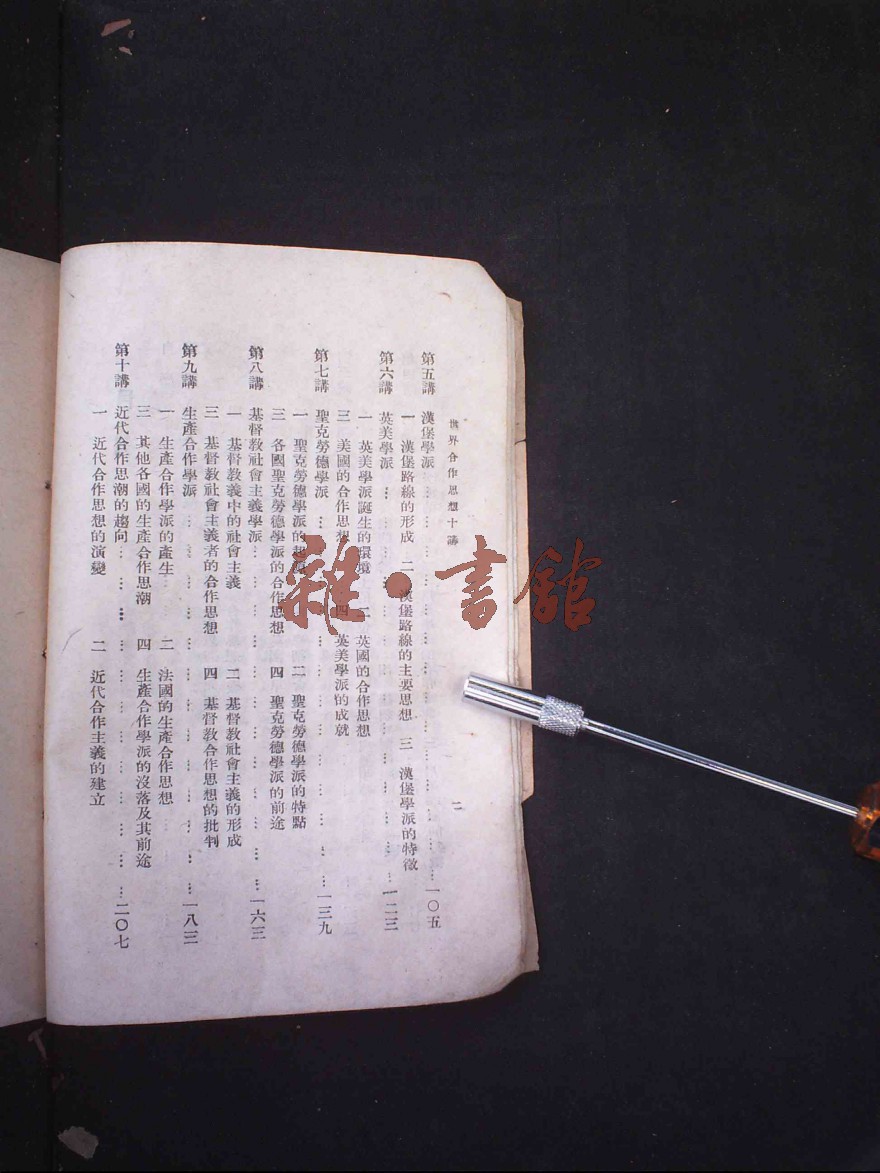 世界合作思想十講
二
第五講 漢堡學派……一〇五
一 漢堡路線的形成 二 漢堡路線的主要思想 三 漢堡學派的特徵
第六講 英美學派……一二三
一 英美學派誕生的環境 二 英國的合作思想
三 美國的合作思想 四 英美學派的成就
第七講 聖克勞德學派……一三九
一 聖克勞德學派的 二 聖克勞德學派的特點
三 各國聖克勞德學派的合作思想 四 聖克勞德學派的前途
第八講 基督教社會主義學派……一六三
一 基督教義中的社會主義 二 基督教社會主義的形成
三 基督教社會主義者的合作思想 四 基督教合作思想的批判
第九講 生產合作學派……一八三
一 生產合作學派的產生 二 法國的生產合作思想
三 其他各國的生產合作思潮 四 生產合作學派的沒落及其前途
第十講 近代合作思潮的趨向……二〇七
一 近代合作思想的演變 二 近代合作主義的建立
雜·書館